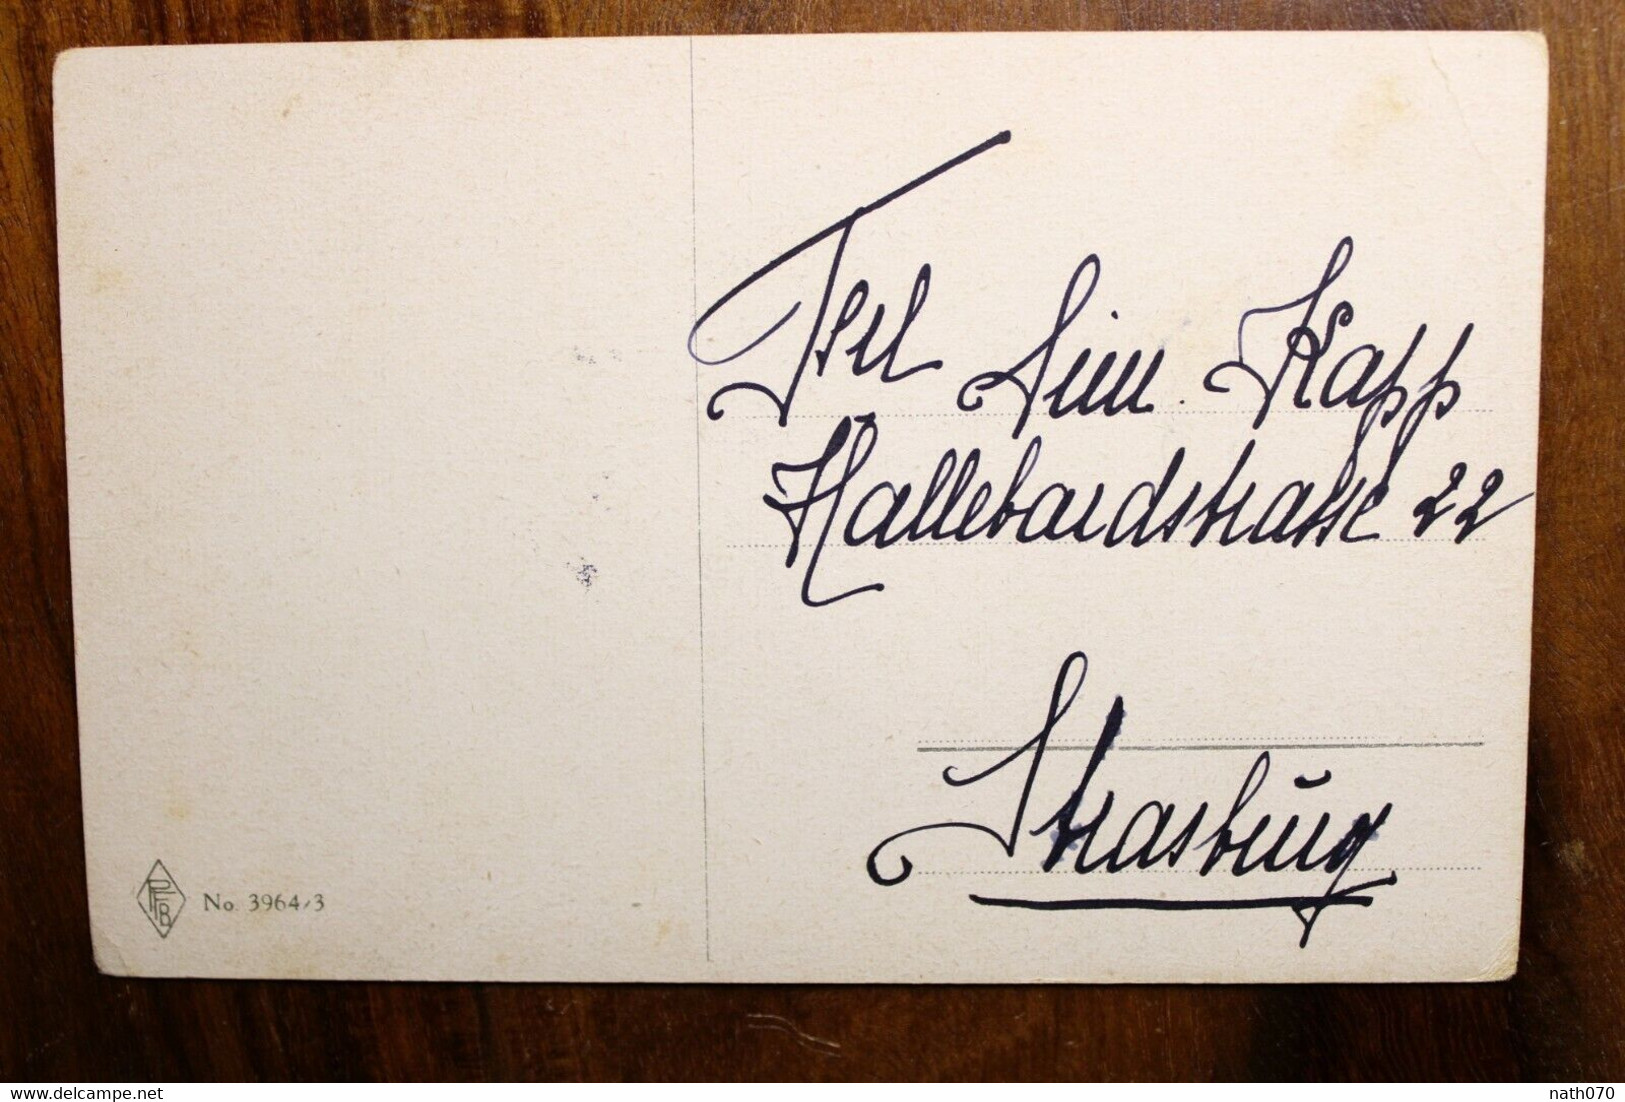 Frl Kapp
Hallebardstrasse 22
Strasbŭrg
PFB
No. 3964/3
delcampe.net
nath070